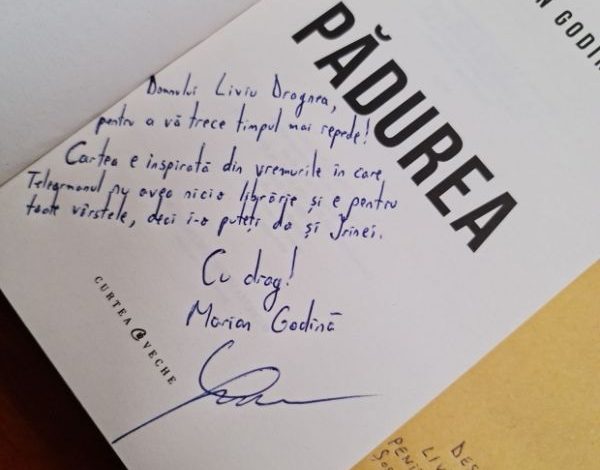 N GODI
PĂDUREA
Domnului Liviu Dragnea,
pentru a vă trece timpul mai repede!
Cartea e inspirată din vremurile în care,
Teleormanul nu avea nicio librărie și e pentru
toate vârstele, deci i-o puteți da și Irinei.
Cu drag!
Marian Godină
CURTEA VECHE
DES
LIV
PENI